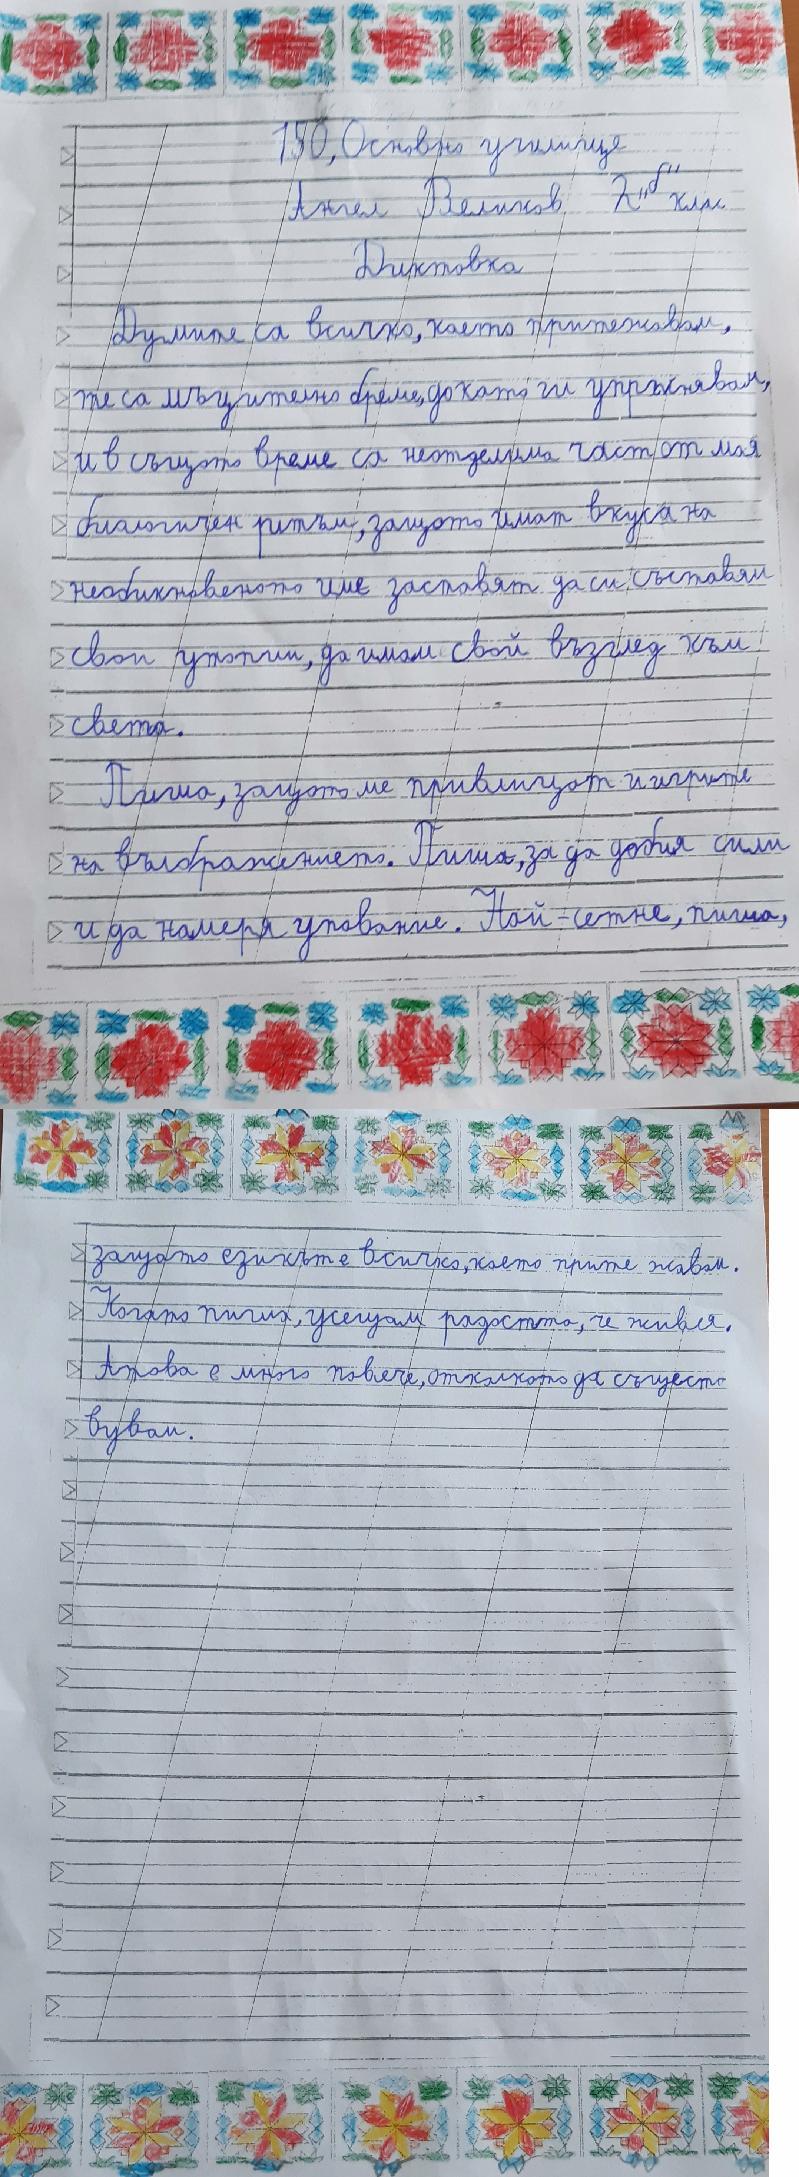 150, Основно училище
Ангел Великов 7 "б" клас
Диктовка
Думите са всичко, което притежавам,
те са мъчително бреме, докато ги упражнявам,
и в същото време са неотделима част от моя
биологичен ритъм, защото имат вкуса на
необикновеното и ме заставят да си съставям
свои утопии, да имам свой възглед към
света.
Пиша, защото ме привличат и игрите
на въображението. Пиша, за да добия сили
и да намеря упование. Най-сетне, пиша,
защото езикът е всичко, което прите жавам.
Когато пиша, усещам радостта, че живея.
А това е много повече, отколкото да същест
вувам.